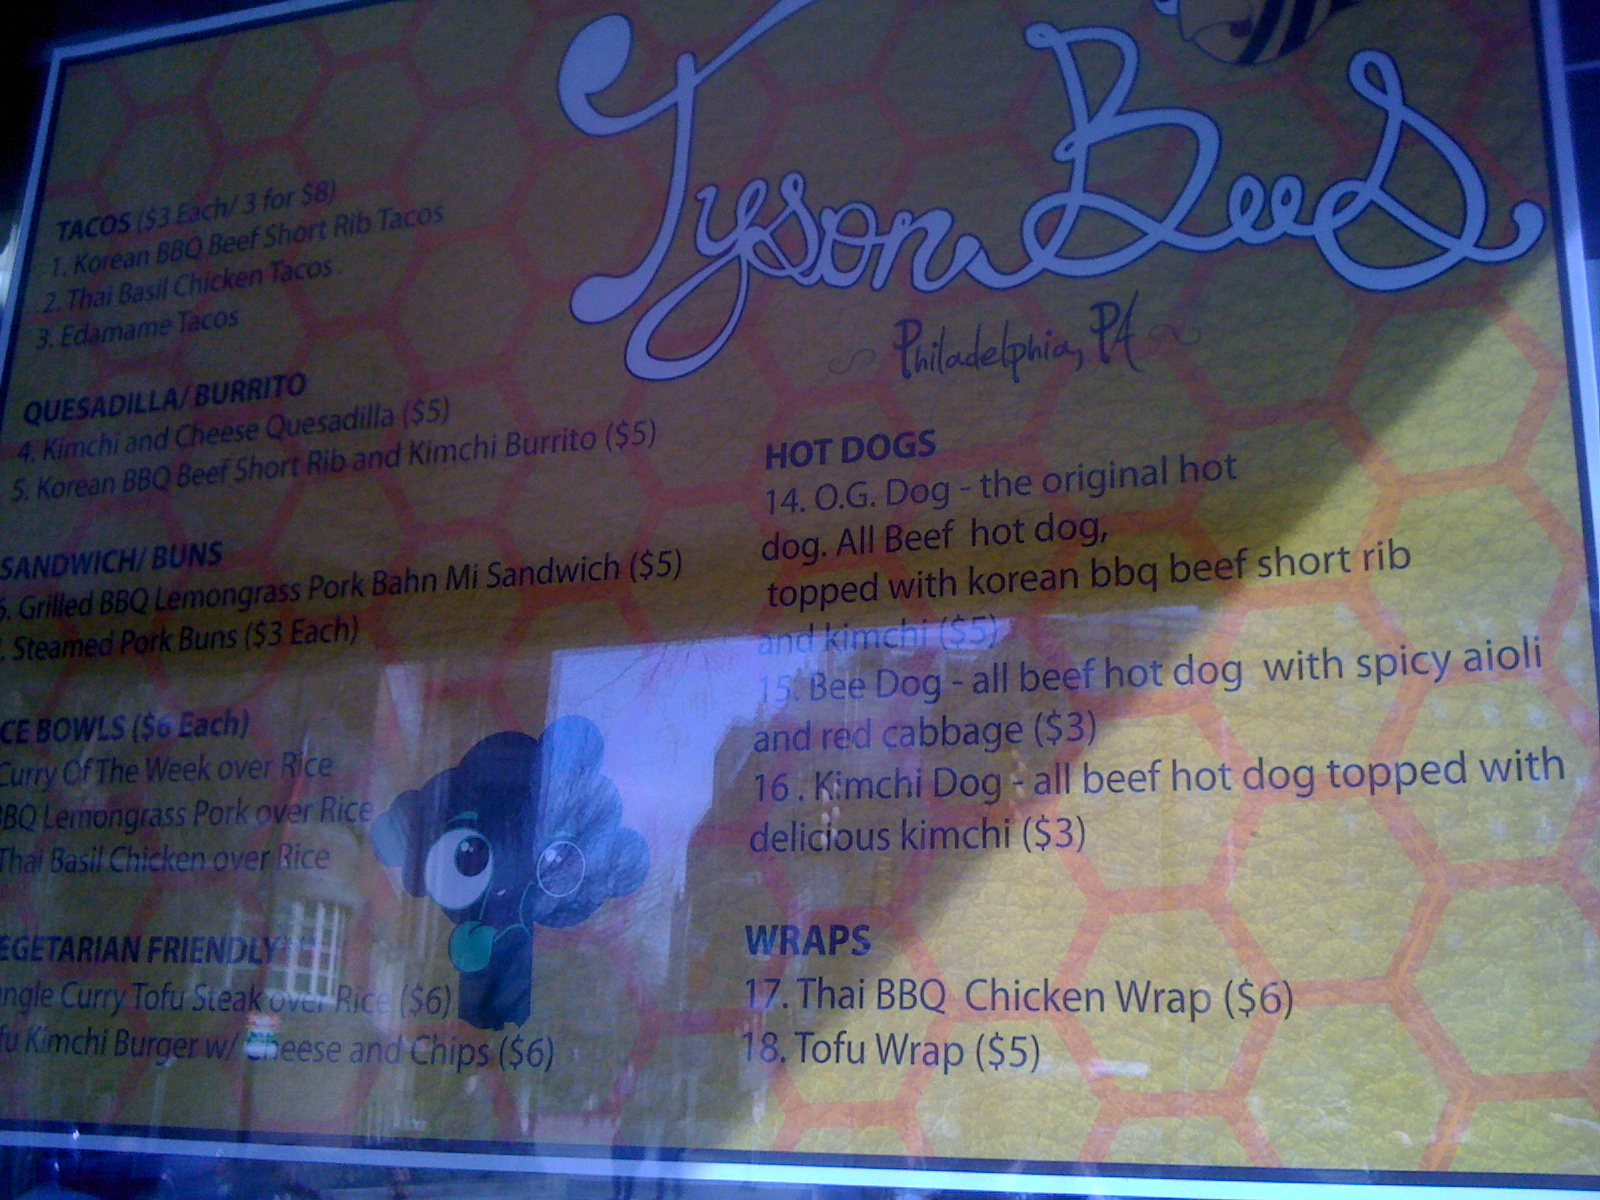 Tyson Bees
Philadelphia, PA
TACOS ($3 Each/ 3 for $8)
1. Korean BBQ Beef Short Rib Tacos
2. Thai Basil Chicken Tacos
3. Edamame Tacos
QUESADILLA/ BURRITO
4. Kimchi and Cheese Quesadilla ($5)
5. Korean BBQ Beef Short Rib and Kimchi Burrito ($5)
SANDWICH/ BUNS
6. Grilled BBQ Lemongrass Pork Bahn Mi Sandwich ($5)
. Steamed Pork Buns ($3 Each)
CE BOWLS ($6 Each)
Curry Of The Week over Rice
BBQ Lemongrass Pork over Rice
Thai Basil Chicken over Rice
EGETARIAN FRIENDLY
Curry Tofu Steak over Rice ($6)
fu Kimchi Burger w/ Cheese and Chips ($6)
HOT DOGS
14. O.G. Dog - the original hot
dog. All Beef hot dog,
topped with korean bbq beef short rib
and kimchi ($5)
15. Bee Dog - all beef hot dog with spicy aioli
and red cabbage ($3)
16 . Kimchi Dog - all beef hot dog topped with
delicious kimchi ($3)
WRAPS
17. Thai BBQ Chicken Wrap ($6)
18. Tofu Wrap ($5)